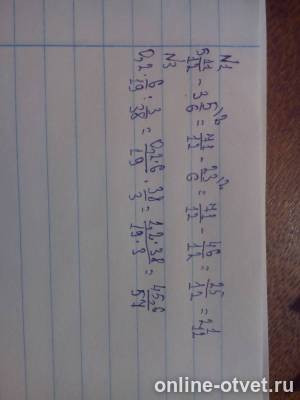 N1
5 11/12 - 3 5/6\2 = 71/12 - 23/6\2 = 71/12 - 46/12 = 25/12 = 2 1/12
N3
0,2 · 6/19 : 3/38 = 0,2·6/19 · 38/3 = 1,2·38/19·3 = 45,6/57
online-otvet.ru